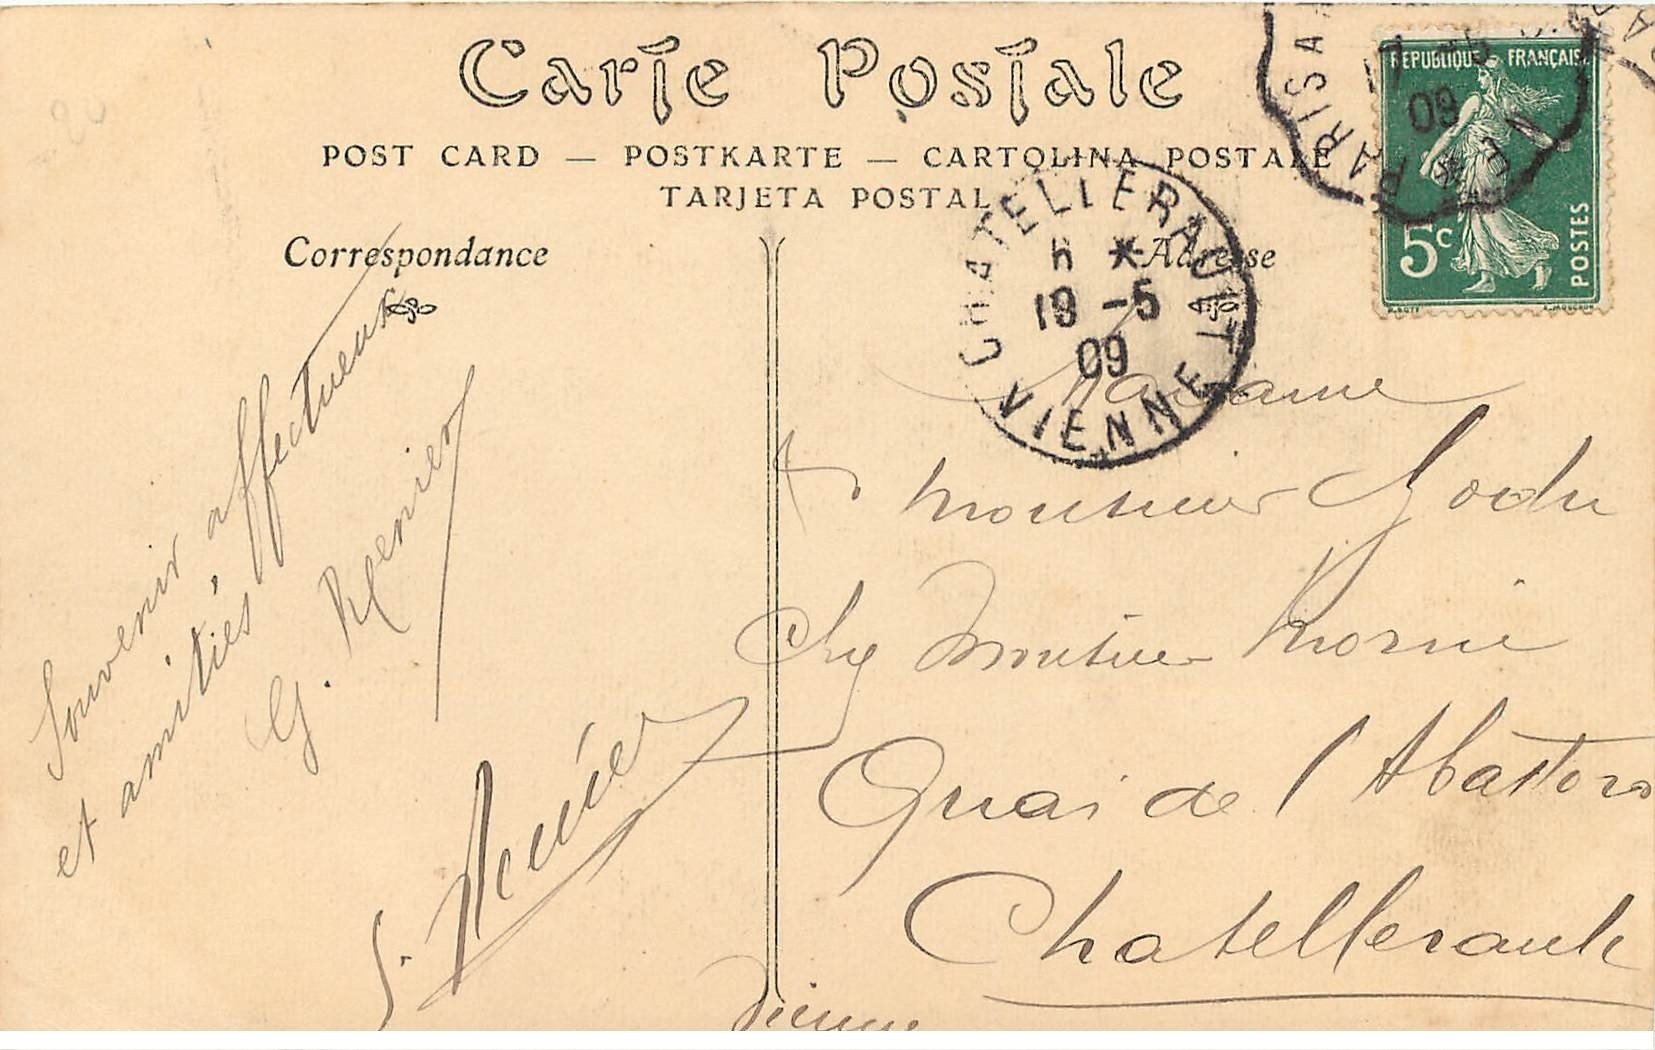 Carte Postale
POST CARD — POSTKARTE — CARTOLINA POSTALE
TARJETA POSTAL
Correspondance
Adresse
REPUBLIQUE FRANÇAISE
5c
POSTES
PARIS A
09
CHATELLERAULT
19 -5
09
VIENNE
Souvenir affectueux
et amitiés
G. Renier
Renier
Madame
Monsieur
Chez Monsieur
Quai de l'
Chatellerault
Vienne